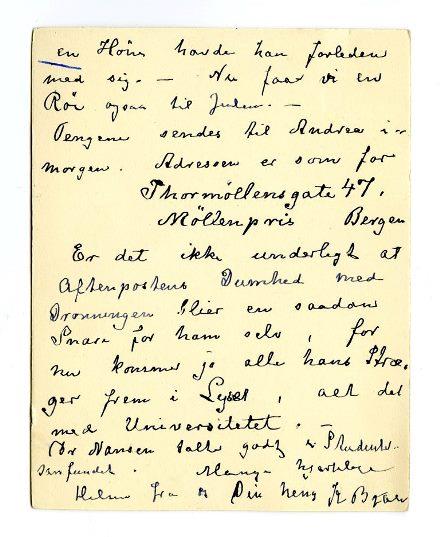 en Höne havde han forleden
med sig. — Nu faar vi en
Röi ogsaa til Julen. —
Pengene sendes til Andrea i
morgen. Adressen er som för
Thormöllensgate 47,
Möllenpris Bergen
Er det ikke underligt at
Aftenpostens Dumhed med
Dronningen blier en saadan
Snare for ham selv, for
nu kommer jo alle hans Stræ-
ger frem i Lyset, alt det
med Universitetet. —
Dr Nansen talte godt i Studenter-
samfundet. Mange hjertelige
Hilsner fra os Din heng